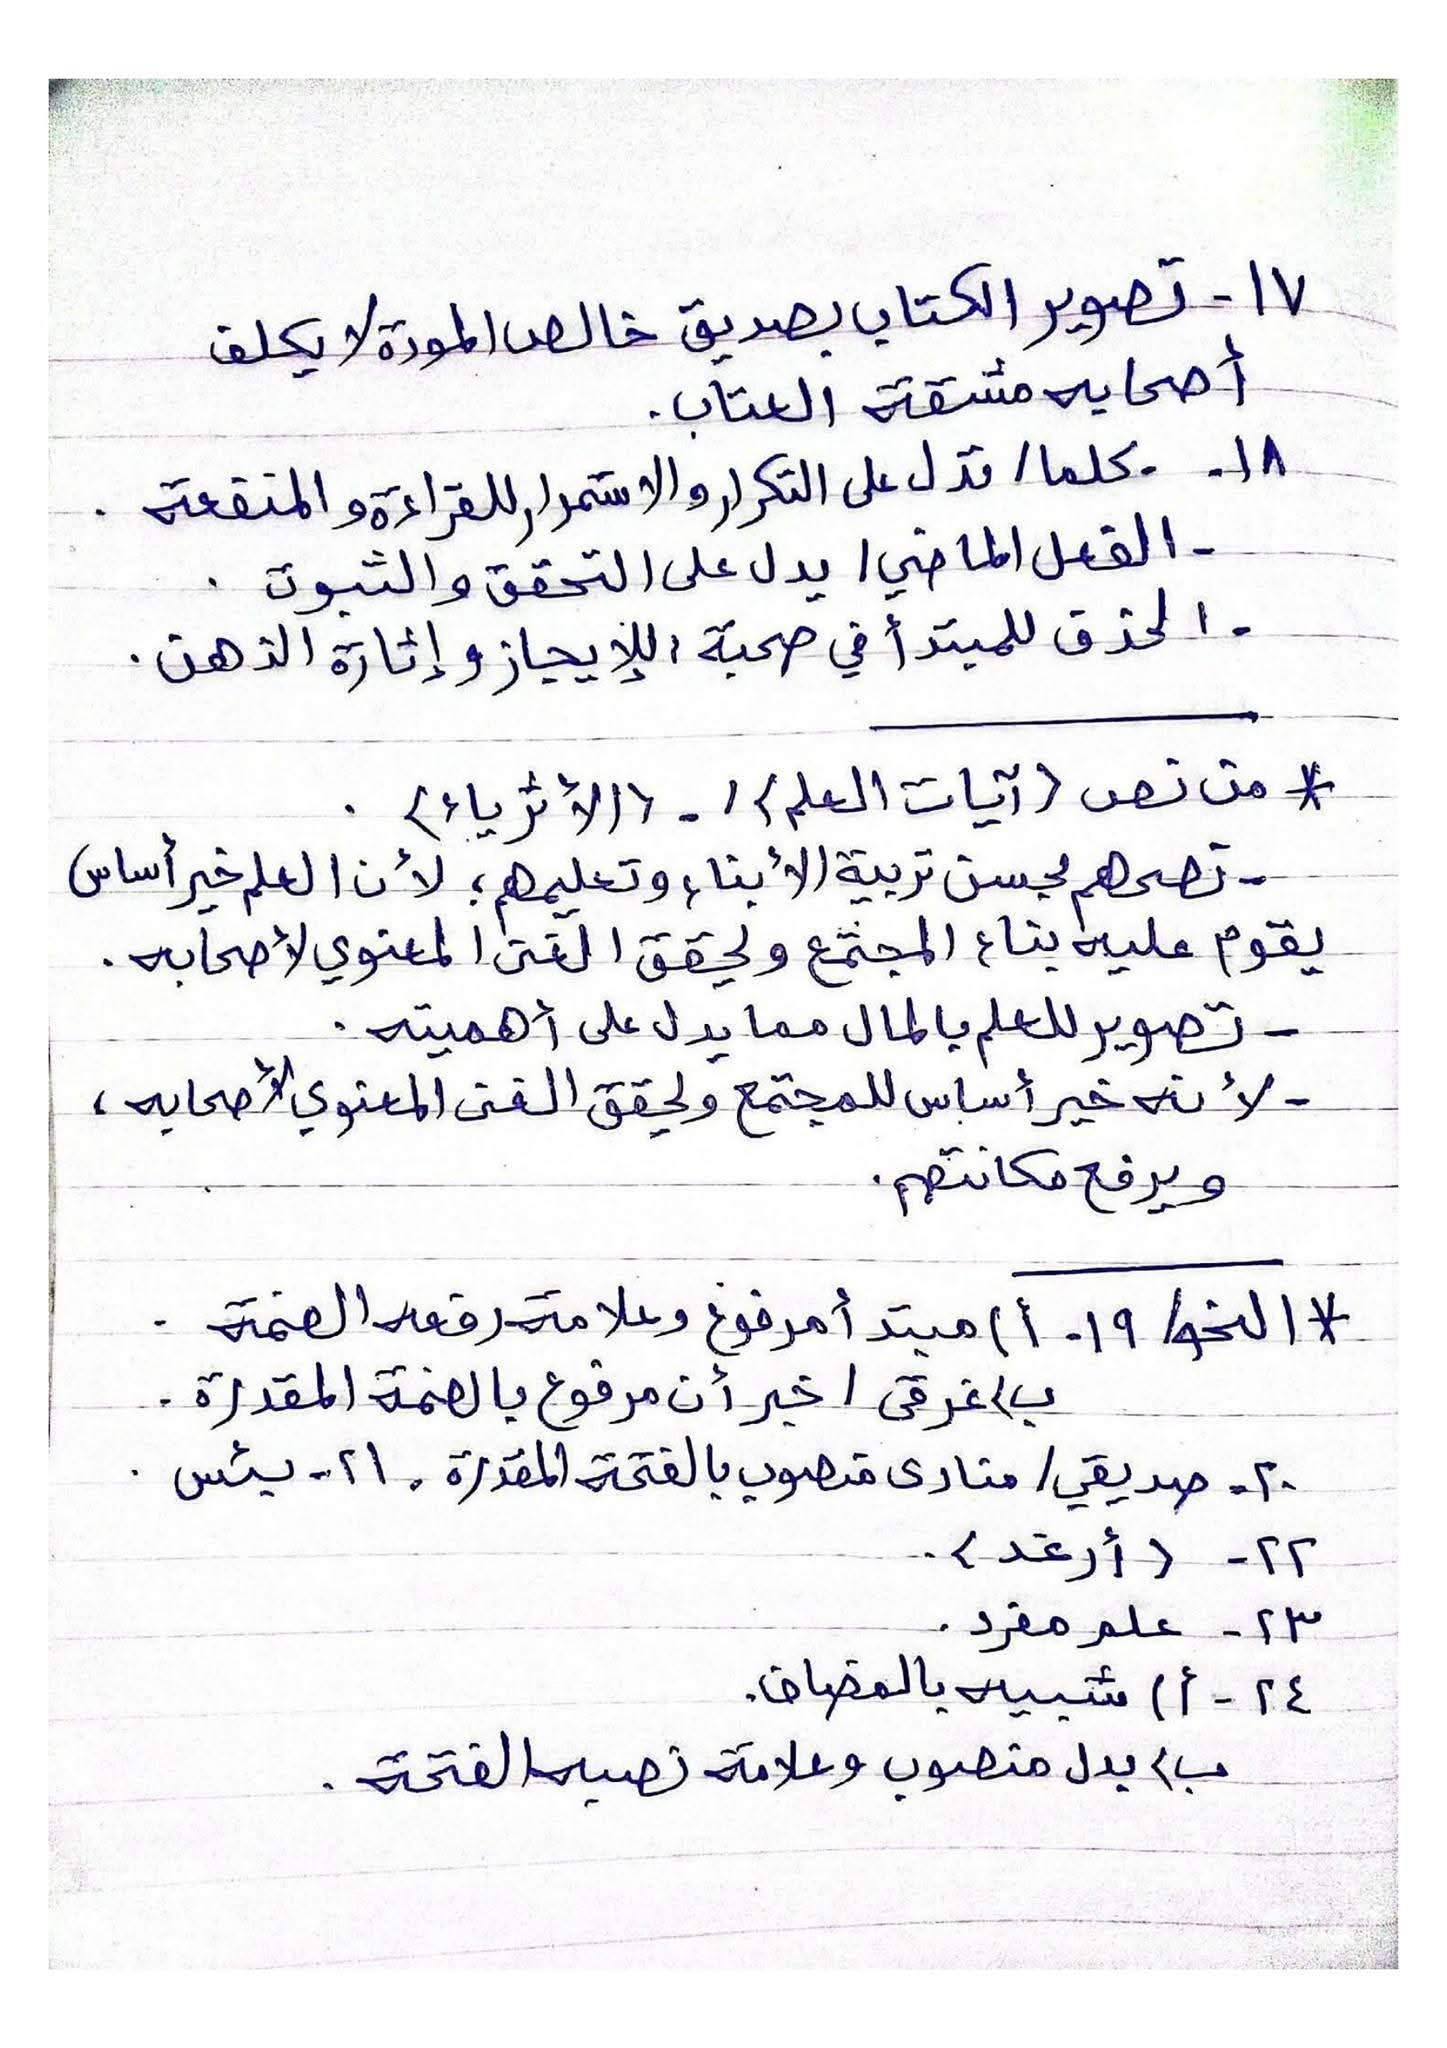 ١٧- تصوير الكتاب بصديق خالص المودة لا يكلف
أصحابه مشقة العتاب.
١٨- - كلما / تدل على التكرار والاستمرار للقراءة و المنفعة .
- الفعل الماضي / يدل على التحقق والثبوت .
- الحذف للمبتدأ في صحبة / للإيجاز وإثارة الذهن .
* من نص (آيات العلم) / - (الأثرياء) .
- نصحهم بحسن تربية الأبناء وتعليمهم؛ لأن العلم خير أساس
يقوم عليه بناء المجتمع ويحقق الغنى المعنوي لأصحابه .
- تصوير للعلم بالمال مما يدل على أهميته .
- لأنه خير أساس للمجتمع ويحقق الغنى المعنوي لأصحابه ،
ويرفع مكانتهم .
* النحو / ١٩- أ) مبتدأ مرفوع وعلامة رفعه الضمة .
ب) غرقى / خبر أن مرفوع بالضمة المقدرة .
٢٠- صديقي / منادى منصوب بالفتحة المقدرة . ٢١- بئس .
٢٢- (أرغد) .
٢٣- علم مفرد .
٢٤- أ) شبيه بالمضاف .
ب) بدل منصوب وعلامة نصبه الفتحة .